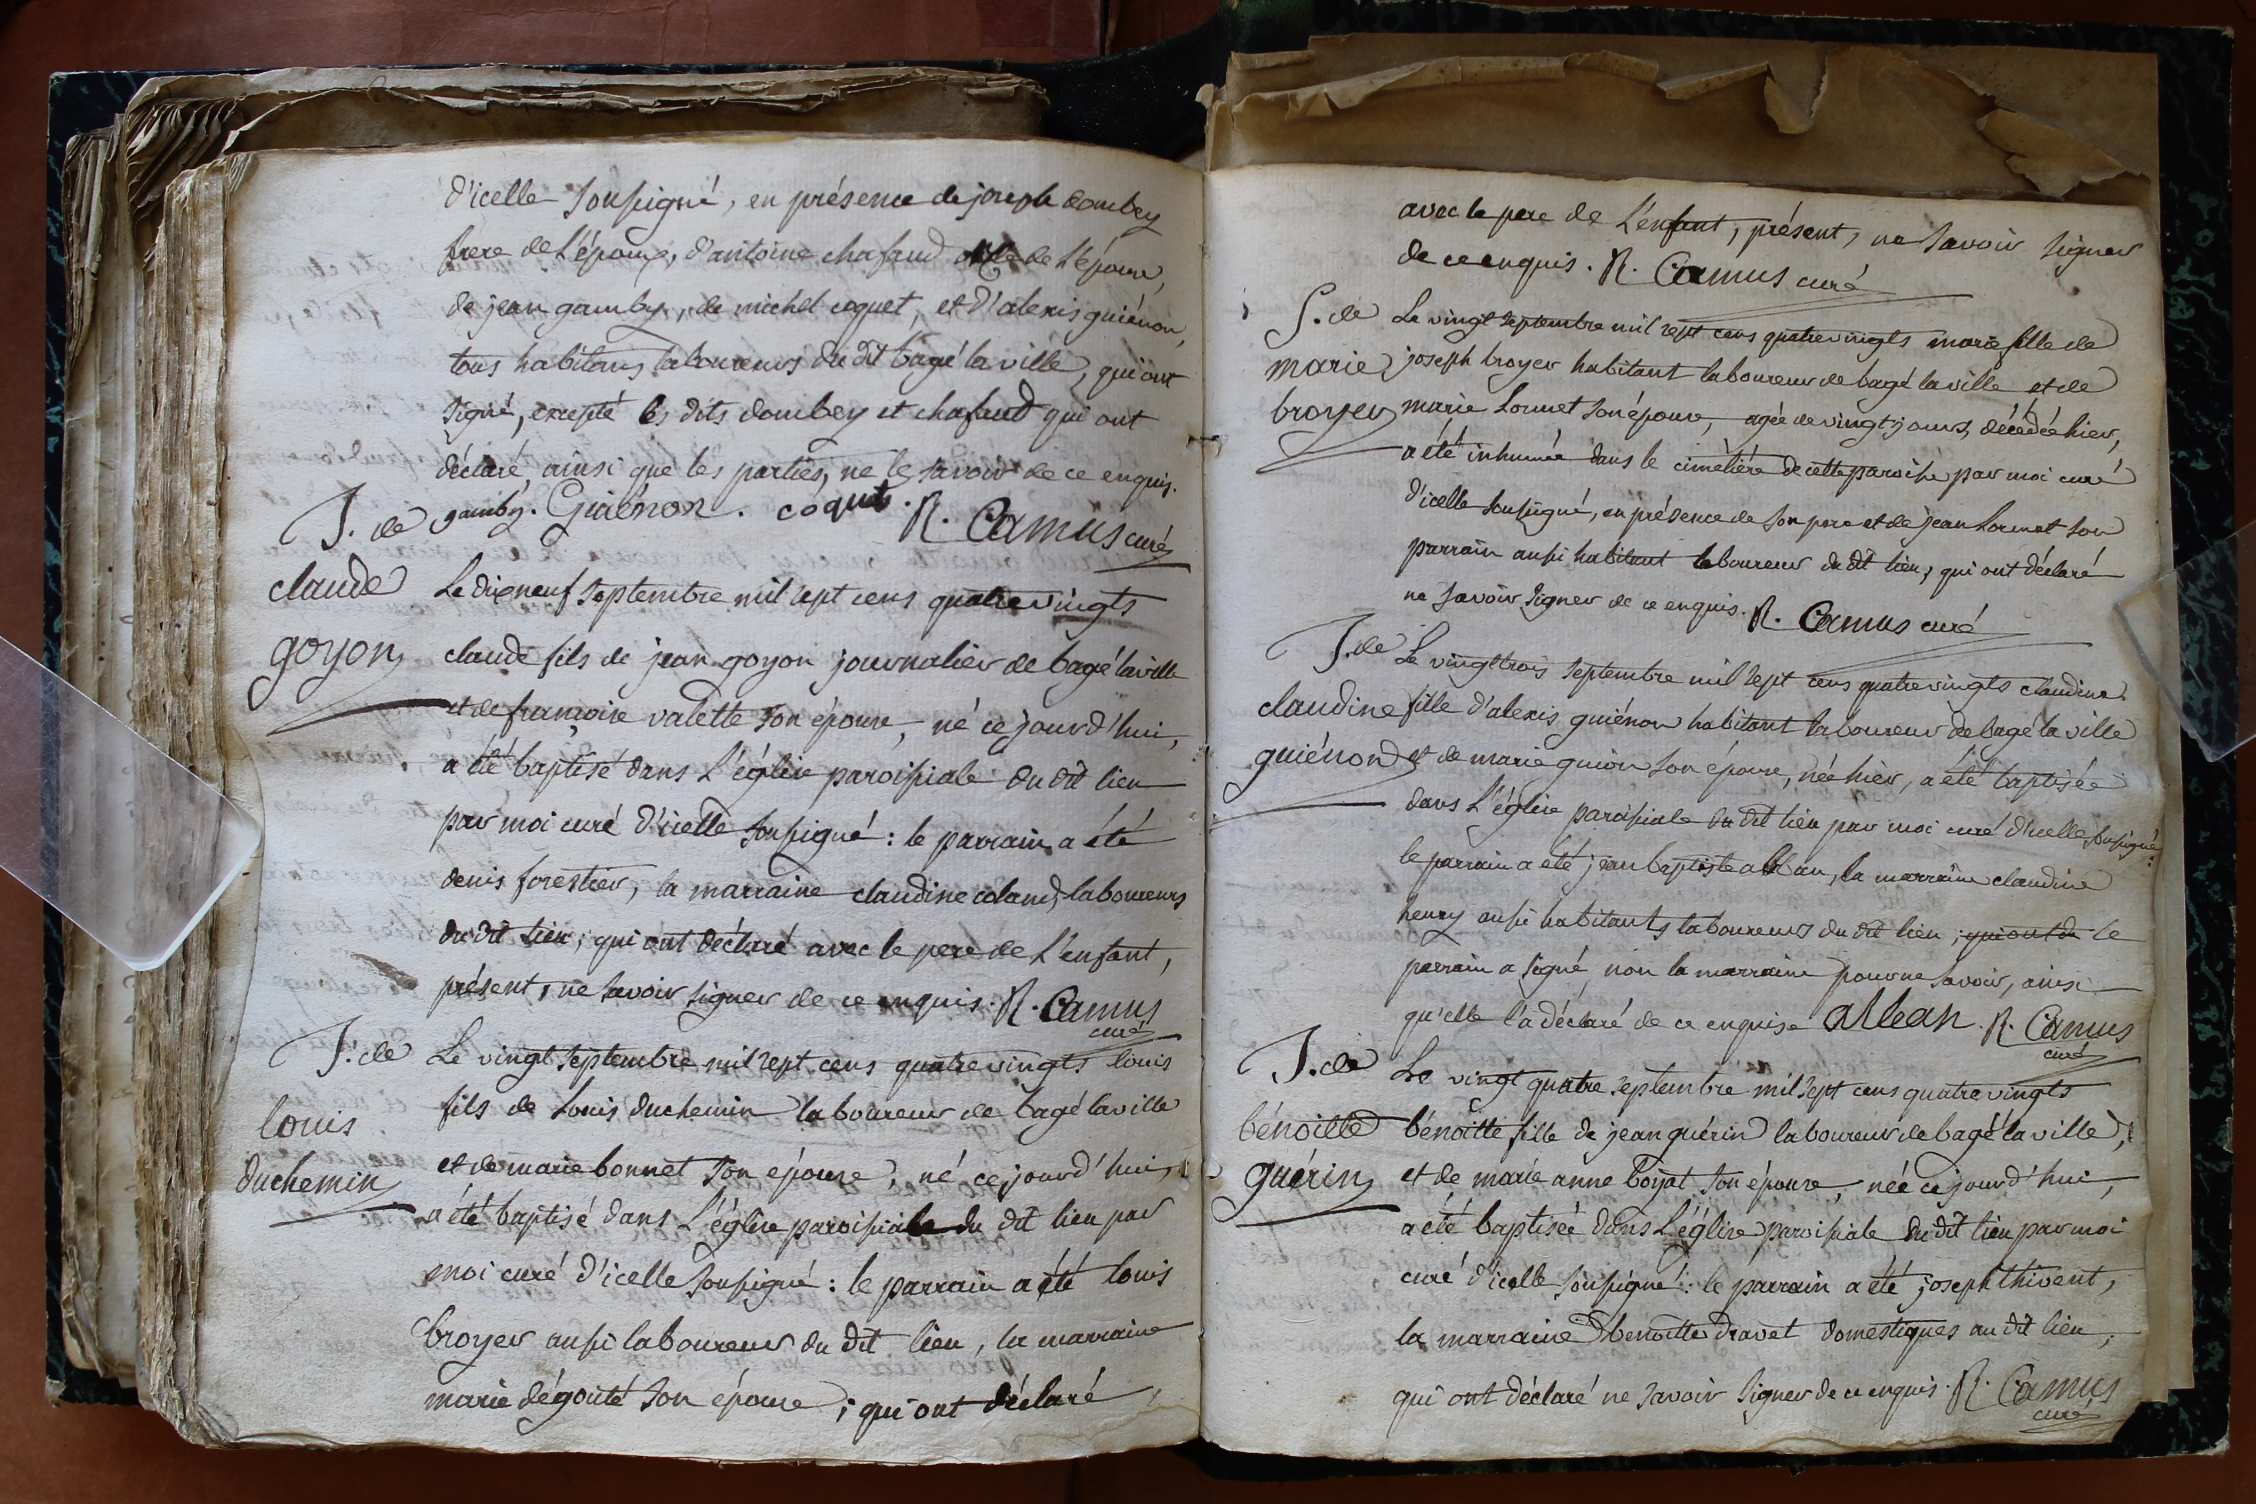 d'icelle soussigné, en présence de joseph dombey
frere de l'époux, d'antoine chafaud oncle de l'épouse,
de jean gamby, de michel coquet, et d'alexis guiénon,
tous habitans laboureurs du dit bagé la ville, qui ont
signé, excepté les dits dombey et chafaud qui ont
déclaré, ainsi que les parties, ne le savoir de ce enquis.
gamby. Guiénon. coquet. R. Camus curé
J. de
claude
goyon
Le dixneuf septembre mil sept cens quatrevingts
claude fils de jean goyon journalier de bagé laville
et de françoise valette son épouse, né ce jourd'hui,
a été baptisé dans l'église paroissiale du dit lieu
par moi curé d'icelle soussigné : le parrain a été
denis forestier, la marraine claudine coland, laboureurs
du dit lieu; qui ont déclaré avec le pere de l'enfant,
présent, ne savoir signer de ce enquis. R. Camus
curé
J. de
louis
duchemin
Le vingt septembre mil sept cens quatrevingts louis
fils de louis duchemin laboureur de bagé laville
et de marie bonnet son épouse, né ce jourd'hui,
a été baptisé dans l'église paroissiale du dit lieu par
moi curé d'icelle soussigné : le parrain a été louis
broyer aussi laboureur du dit lieu, la marraine
marie dégouté son épouse; qui ont déclaré
avec le pere de l'enfant, présent, ne savoir signer
de ce enquis. R. Camus curé
S. de
marie
broyer
Le vingt septembre mil sept cens quatrevingts marie fille de
joseph broyer habitant laboureur de bagé la ville et de
marie Lornet son épouse, agée de vingt jours, décédée hier,
a été inhumée dans le cimetière de cette paroisse par moi curé
d'icelle soussigné, en présence de son pere et de jean Lornet son
parrain aussi habitant laboureur du dit lieu, qui ont déclaré
ne savoir signer de ce enquis. R. Camus curé
J. de
claudine
guiénon
Le vingttrois septembre mil sept cens quatrevingts claudine
fille d'alexis guiénon habitant laboureur de bagé la ville
et de marie guion son épouse, née hier, a été baptisée
dans l'église paroissiale du dit lieu par moi curé d'icelle soussigné :
le parrain a été jean baptiste alban, la marraine claudine
henry aussi habitants laboureurs du dit lieu ; qui ont dé le
parrain a signé, non la marraine pour ne savoir, ainsi
qu'elle l'a déclaré de ce enquise alban. R. Camus
curé
J. de
bénoitte
guérin
Le vingt quatre septembre mil sept cens quatrevingts
bénoitte fille de jean guérin laboureur de bagé la ville,
et de marie anne boyat son épouse, née ce jourd'hui,
a été baptisée dans l'église paroissiale du dit lieu par moi
curé d'icelle soussigné : le parrain a été joseph thivent,
la marraine benoitte dravet domestiques au dit lieu,
qui ont déclaré ne savoir signer de ce enquis. R. Camus
curé